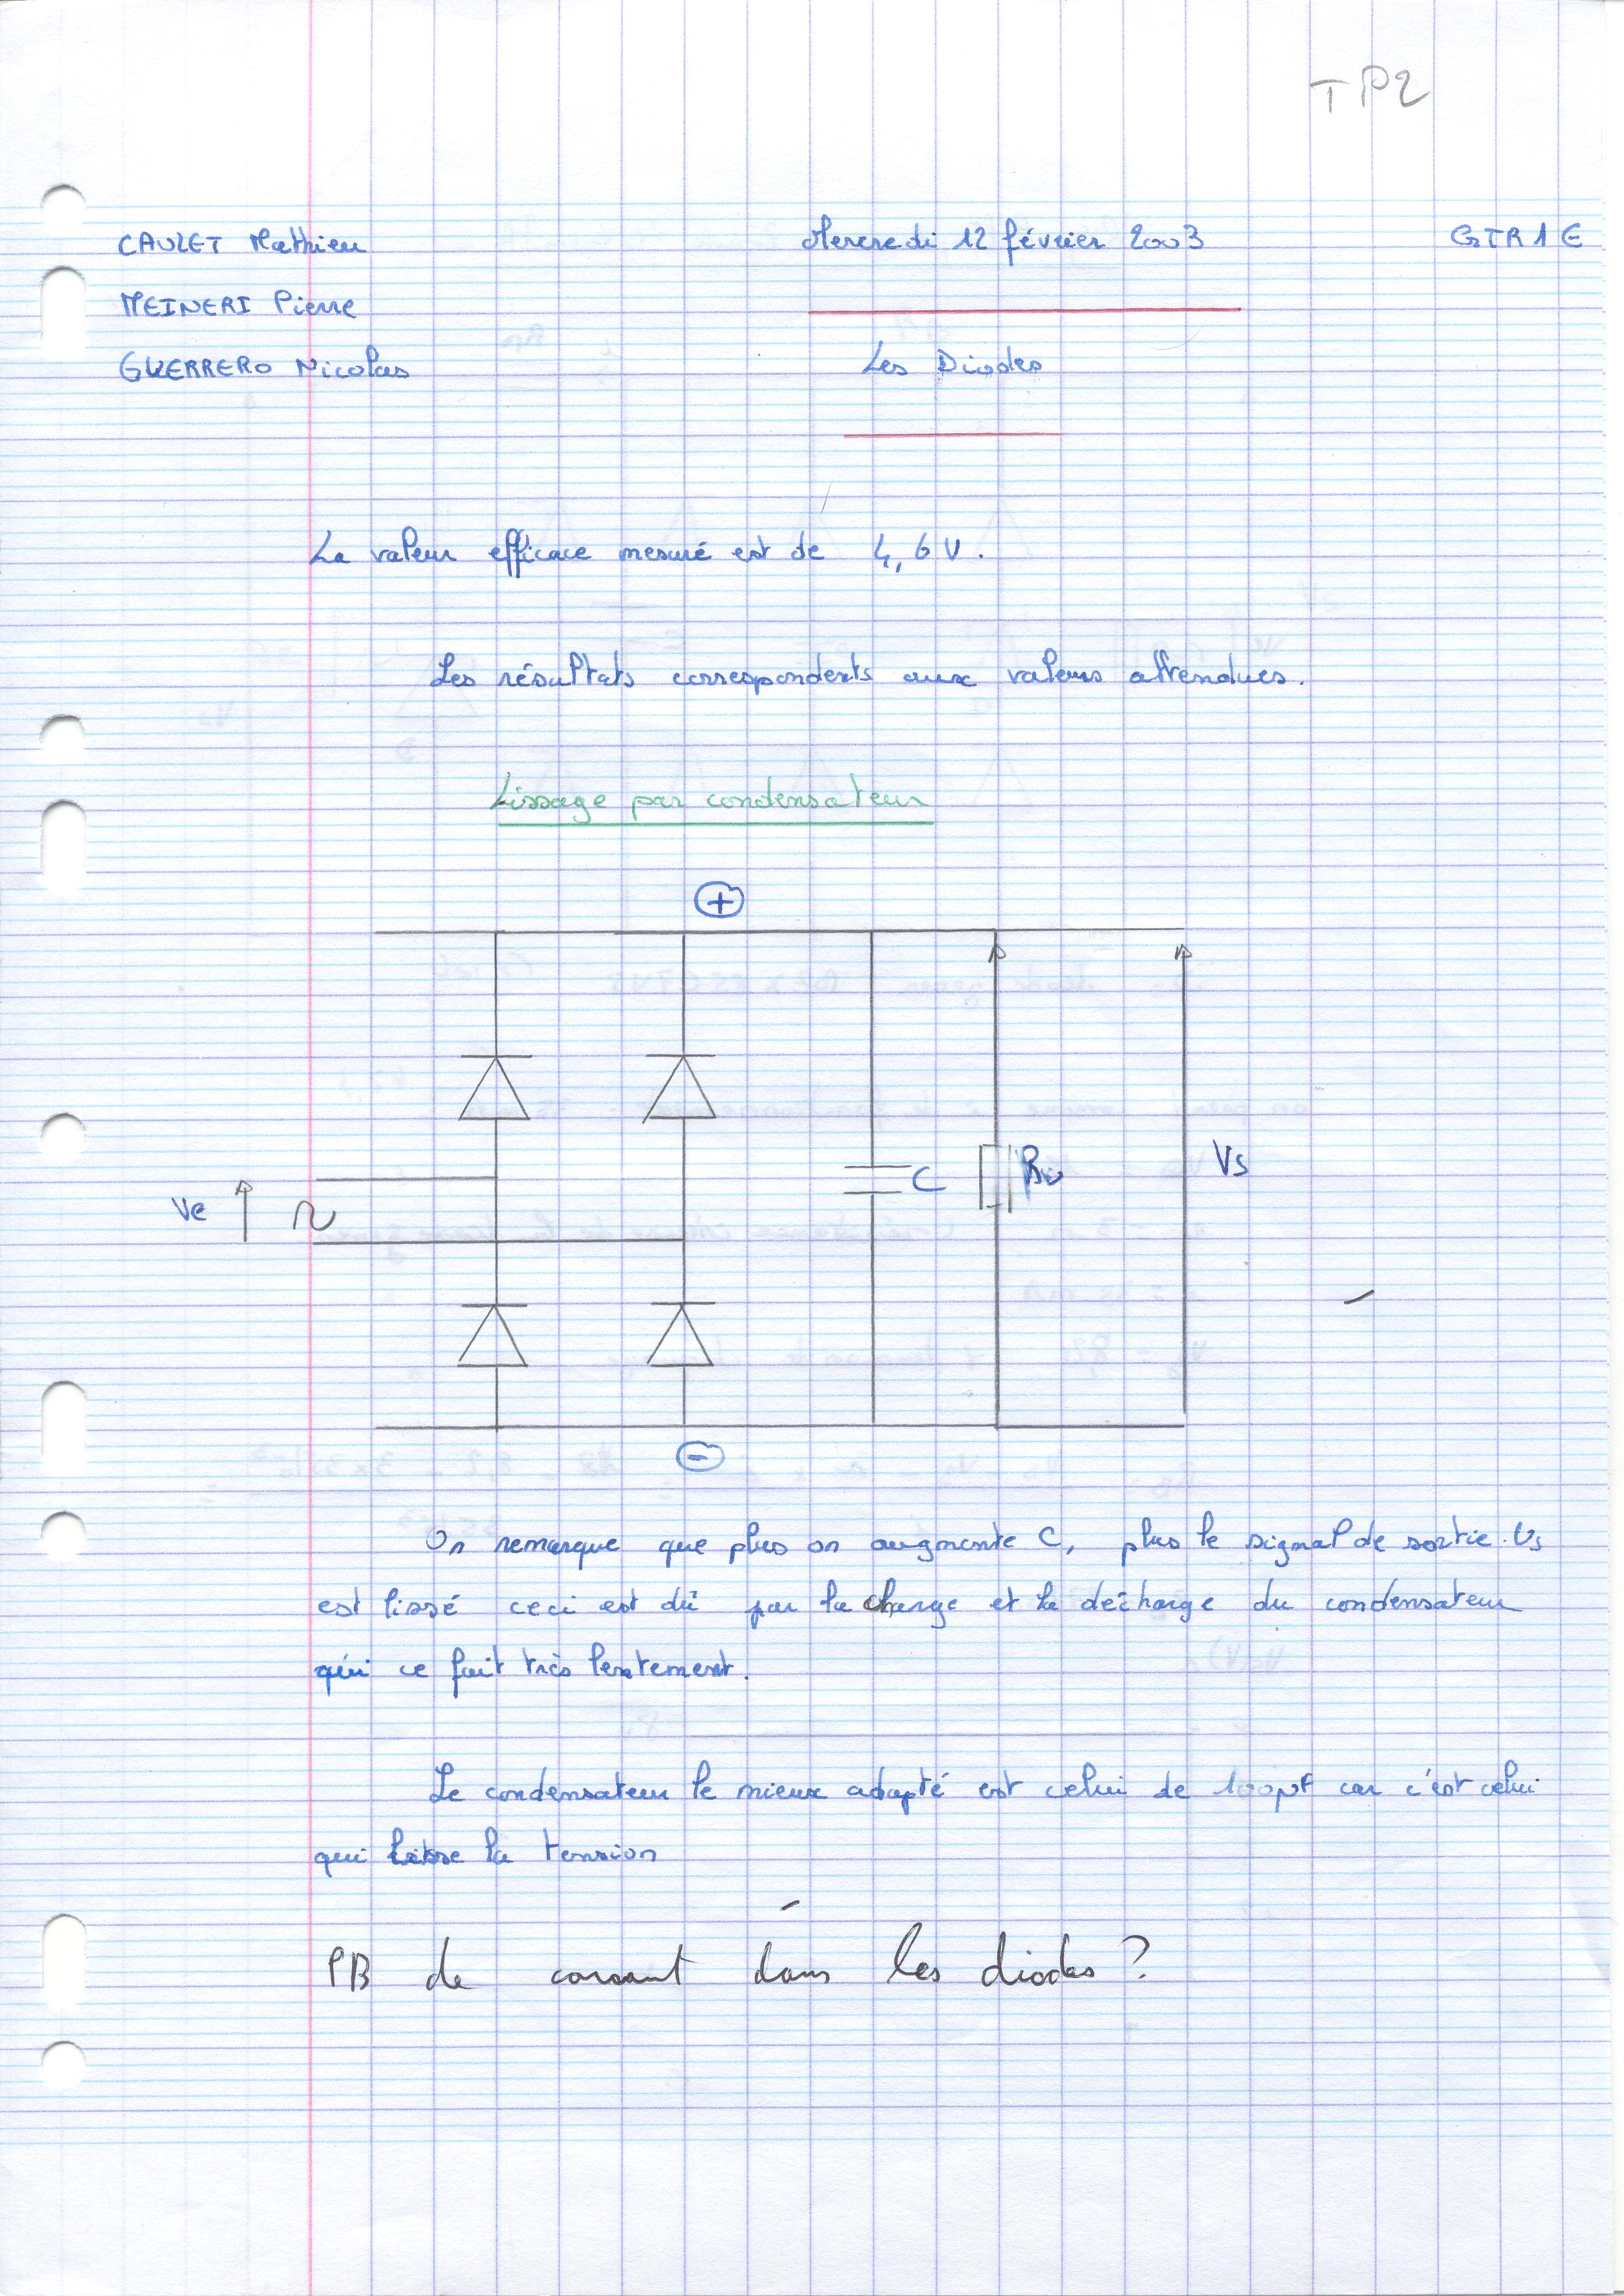 TP2
CAULET Mathieu Mercredi 12 février 2003 GTR1E
MEINERI Pierre
GUERRERO Nicolas Les Diodes
La valeur efficace mesuré est de 4,6 V.
Les résultats correspondents aux valeurs attendues.
Lissage par condensateur
+
C Vs
Ve
-
On remarque que plus on augmente C, plus le signal de sortie Vs
est lissé ceci est dû par la charge et la décharge du condensateur
qui ce fait très lentement.
Le condensateur le mieux adapté est celui de 100µF car c'est celui
qui la tension
PB de courant dans les diodes ?